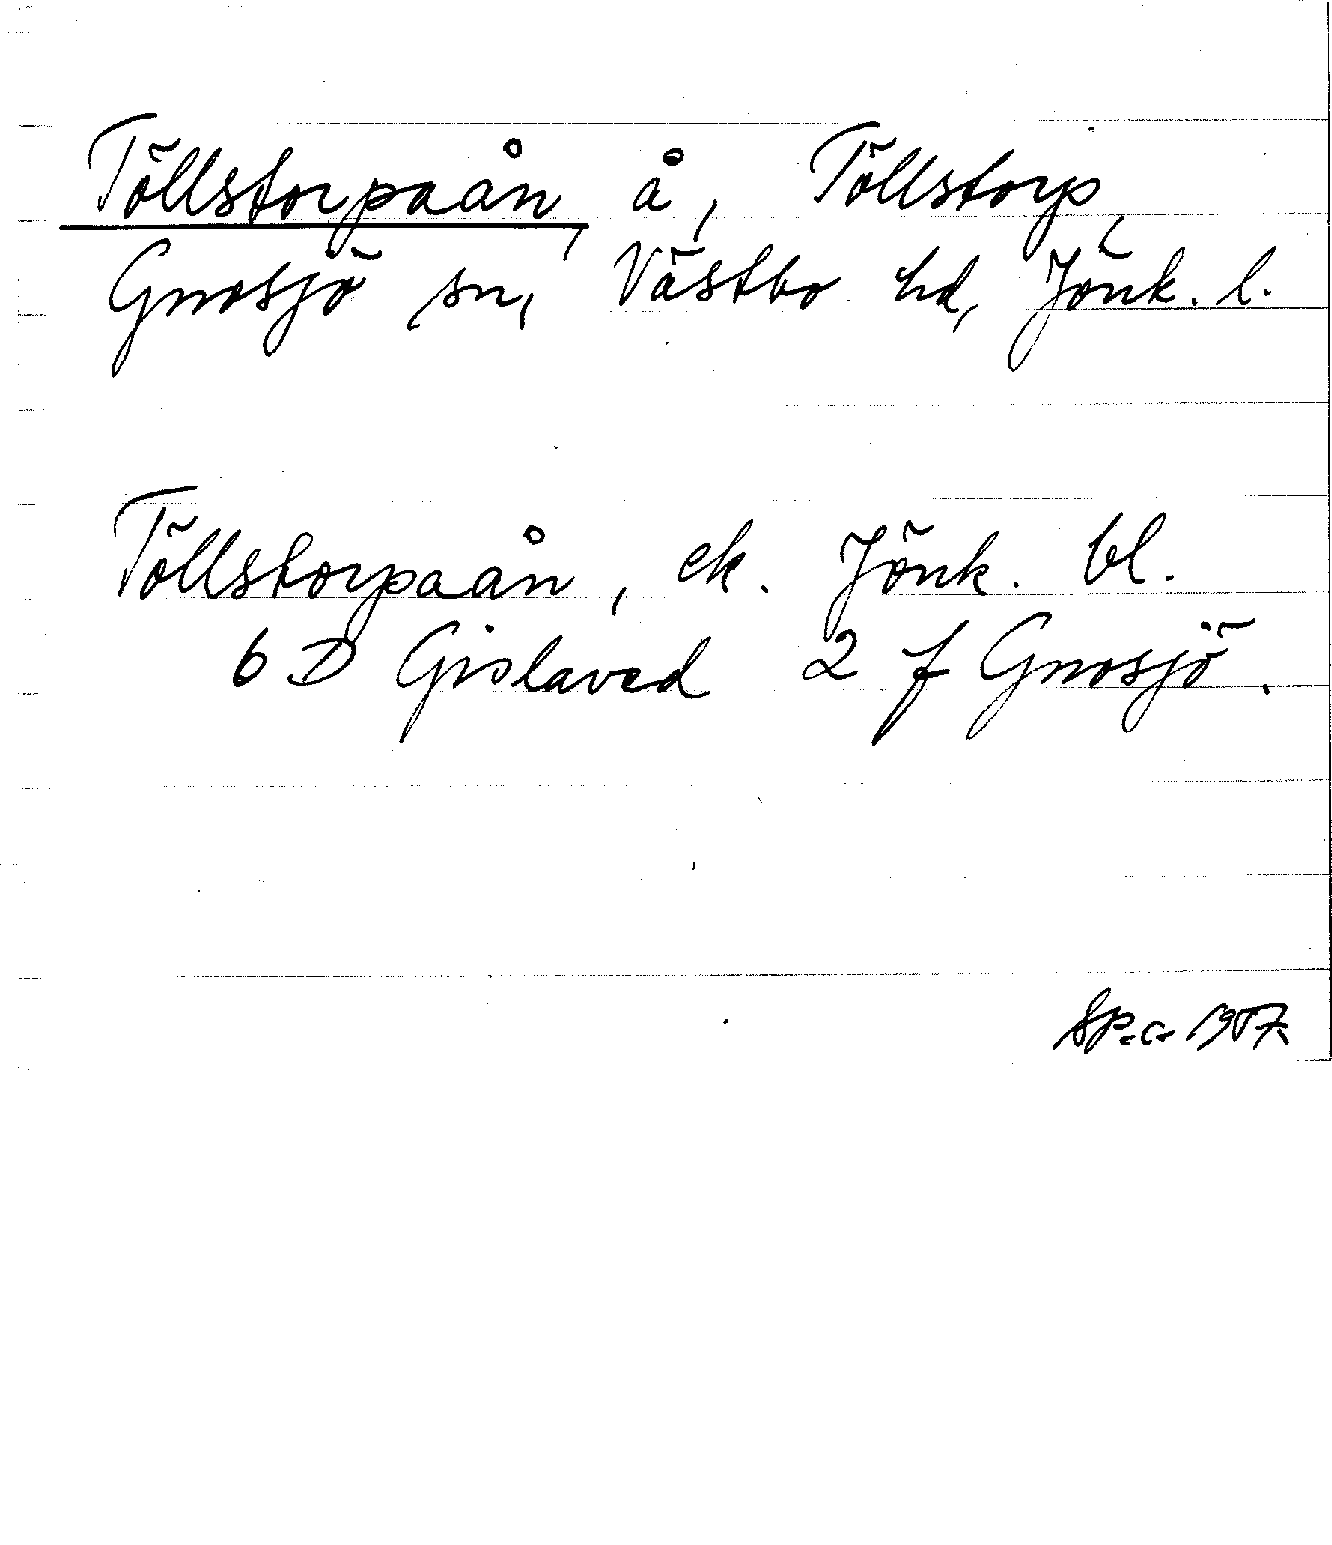 Töllstorpaån, å, Töllstorp,
Gnosjö sn, Västbo hd, Jönk. l.
Töllstorpaån, ek. Jönk. bl.
6 D Gislaved 2 f Gnosjö.